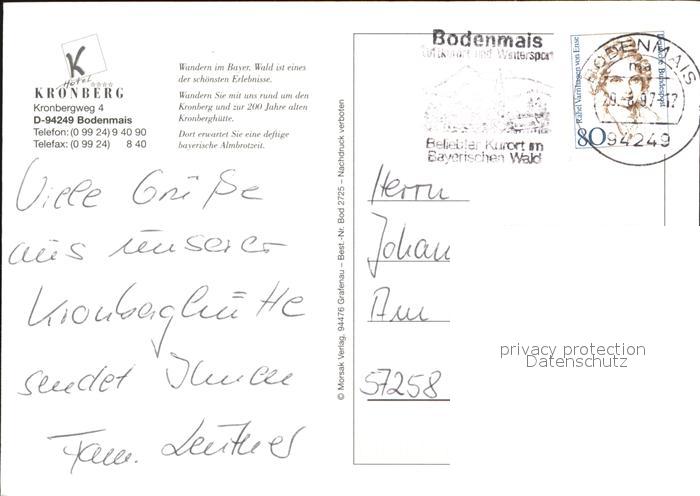 K
Hotel
KRONBERG
Kronbergweg 4
D-94249 Bodenmais
Telefon: (0 99 24) 9 40 90
Telefax: (0 99 24) 8 40
Wandern im Bayer. Wald ist eines
der schönsten Erlebnisse.
Wandern Sie mit uns rund um den
Kronberg und zur 200 Jahre alten
Kronberghütte.
Dort erwartet Sie eine deftige
bayerische Almbrotzeit.
Viele Grüße
aus unserer
Kronberghütte
sendet Ihnen
Fam.
© Morsak Verlag, 94476 Grafenau – Best.-Nr. Bod 2725 – Nachdruck verboten
Bodenmais
Luftkurort und Wintersport
Beliebter Kurort im
Bayerischen Wald
Rahel Varnhagen von Ense
Deutsche Bundespost
80
BODENMAIS
ma
94249
Herrn
Johan
Am
57258
privacy protection
Datenschutz